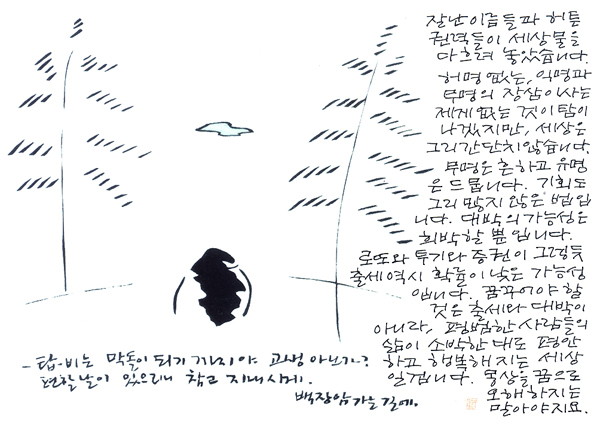 잘난 이름들과 허튼
권력들이 세상 물을
다 흐려 놓았습니다.
허명 없는, 익명과
무명의 장삼이사는
제게 없는 것이 탐이
나겠지만, 세상은
그리 간단치 않습니다.
무명은 흔하고 유명
은 드뭅니다. 기회도
그리 많지 않은 법입
니다. 대박의 가능성은
희박할 뿐입니다.
로또와 투기와 증권이 그렇듯
출세 역시 확률이 낮은 가능성
입니다. 꿈꾸어야 할
것은 출세와 대박이
아니라, 평범한 사람들의
삶이 소박한 대로 평안
하고 행복해지는 세상
일겁니다. 몽상을 꿈으로
오해하지는
말아야지요.
- 탑-비는 막돌이 되기까지야 고생 아닌가?
편할 날이 있으리니 참고 지내시게.
백장암 가는 길에.